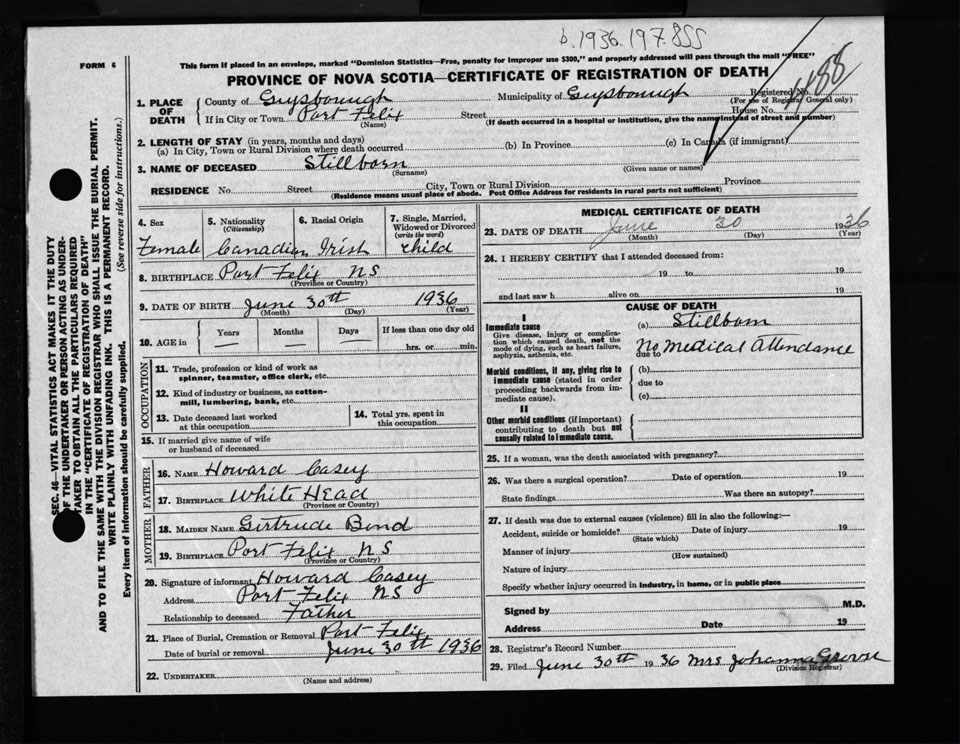 b. 1936. 197. 855
FORM 6
This form if placed in an envelope, marked "Dominion Statistics—Free, penalty for improper use $300," and properly addressed will pass through the mail "FREE"
PROVINCE OF NOVA SCOTIA—CERTIFICATE OF REGISTRATION OF DEATH
1. PLACE OF DEATH
County of Guysborough Municipality of Guysborough Registered No.
(For use of Registrar General only)
If in City or Town Port Felix Street House No.
(Name) (If death occurred in a hospital or institution, give the name instead of street and number)
2. LENGTH OF STAY (in years, months and days)
(a) In City, Town or Rural Division where death occurred (b) In Province (c) In Canada (if immigrant)
3. NAME OF DECEASED Stillborn
(Surname) (Given name or names)
RESIDENCE No. Street City, Town or Rural Division Province
(Residence means usual place of abode. Post Office Address for residents in rural parts not sufficient)
4. Sex 5. Nationality 6. Racial Origin 7. Single, Married,
(Citizenship) Widowed or Divorced
(write the word)
Female Canadian Irish child
8. BIRTHPLACE Port Felix NS
(Province or Country)
9. DATE OF BIRTH June 30th 1936
(Month) (Day) (Year)
10. AGE in Years Months Days If less than one day old
hrs. or min.
OCCUPATION
11. Trade, profession or kind of work as
spinner, teamster, office clerk, etc.
12. Kind of industry or business, as cotton-
mill, lumbering, bank, etc.
13. Date deceased last worked
at this occupation
14. Total yrs. spent in
this occupation
15. If married give name of wife
or husband of deceased
FATHER
16. NAME Howard Casey
17. BIRTHPLACE White Head
(Province or Country)
MOTHER
18. MAIDEN NAME Gertrude Bond
19. BIRTHPLACE Port Felix NS
(Province or Country)
20. Signature of informant Howard Casey
Address Port Felix NS
Relationship to deceased Father
21. Place of Burial, Cremation or Removal Port Felix
Date of burial or removal June 30th 1936
22. UNDERTAKER
(Name and address)
MEDICAL CERTIFICATE OF DEATH
23. DATE OF DEATH June 30 1936
(Month) (Day) (Year)
24. I HEREBY CERTIFY that I attended deceased from:
19 to 19
and last saw h alive on 19
CAUSE OF DEATH
I
Immediate cause
Give disease, injury or complica-
tion which caused death, not the
mode of dying, such as heart failure,
asphyxia, asthenia, etc.
(a) Stillborn
No Medical Attendance
due to
Morbid conditions, if any, giving rise to
immediate cause (stated in order
proceeding backwards from im-
mediate cause).
(b)
due to
(c)
II
Other morbid conditions (if important)
contributing to death but not
causally related to immediate cause.
25. If a woman, was the death associated with pregnancy?
26. Was there a surgical operation? Date of operation 19
State findings Was there an autopsy?
27. If death was due to external causes (violence) fill in also the following:—
Accident, suicide or homicide? Date of injury 19
(State which)
Manner of injury
(How sustained)
Nature of injury
Specify whether injury occurred in industry, in home, or in public place
Signed by M.D.
Address Date 19
28. Registrar's Record Number
29. Filed June 30th 1936 Mrs Johanna
(Division Registrar)
SEC. 46—VITAL STATISTICS ACT MAKES IT THE DUTY
OF THE UNDERTAKER OR PERSON ACTING AS UNDER-
TAKER TO OBTAIN ALL THE PARTICULARS REQUIRED
IN THE "CERTIFICATE OF REGISTRATION OF DEATH"
AND TO FILE THE SAME WITH THE DIVISION REGISTRAR WHO SHALL ISSUE THE BURIAL PERMIT.
WRITE PLAINLY WITH UNFADING INK. THIS IS A PERMANENT RECORD.
Every item of information should be carefully supplied. (See reverse side for instructions.)